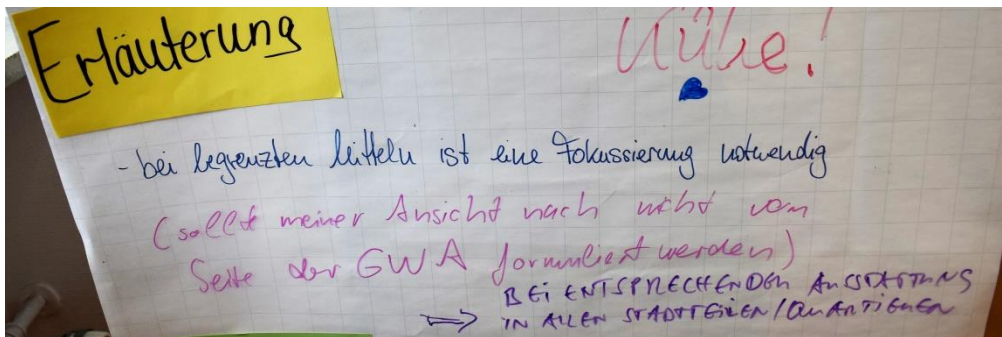 Erläuterung
Kühe!
- bei begrenzten Mitteln ist eine Fokussierung notwendig
(sollte meiner Ansicht nach nicht von
Seite der GWA formuliert werden)
BEI ENTSPRECHENDER AUSSTATTUNG
⇒ IN ALLEN STADTTEILEN/QUARTIEREN